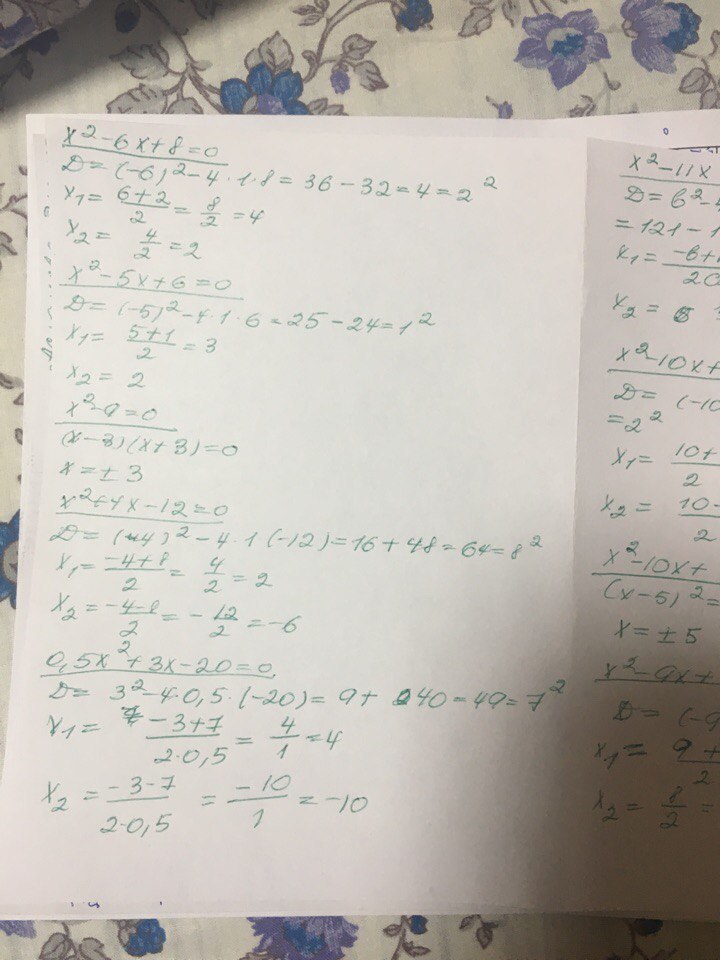 x² - 6x + 8 = 0
D = (-6)² - 4 · 1 · 8 = 36 - 32 = 4 = 2²
x₁ = (6+2)/2 = 8/2 = 4
x₂ = 4/2 = 2
x² - 5x + 6 = 0
D = (-5)² - 4 · 1 · 6 = 25 - 24 = 1²
x₁ = (5+1)/2 = 3
x₂ = 2
x² - 9 = 0
(x - 3)(x + 3) = 0
x = ± 3
x² + 4x - 12 = 0
D = (4)² - 4 · 1 (-12) = 16 + 48 = 64 = 8²
x₁ = (-4+8)/2 = 4/2 = 2
x₂ = (-4-8)/2 = -12/2 = -6
0,5x² + 3x - 20 = 0
D = 3² - 4 · 0,5 · (-20) = 9 + 40 = 49 = 7²
x₁ = (-3+7)/(2·0,5) = 4/1 = 4
x₂ = (-3-7)/(2·0,5) = -10/1 = -10
x² - 11x
D = 6² - 4
= 121 - 1
x₁ = -6+
x₂ =
x² - 10x +
D = (-10
= 2²
x₁ = 10+ / 2
x₂ = 10- / 2
x² - 10x +
(x - 5)² =
x = ± 5
x² - 9x +
D = (-9
x₁ = 9 + / 2
x₂ = 8/2 =